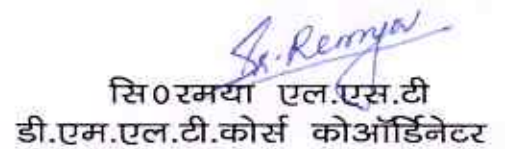 Sr. Remya
सि0रमया एल.एस.टी
डी.एम.एल.टी.कोर्स कोऑर्डिनेटर